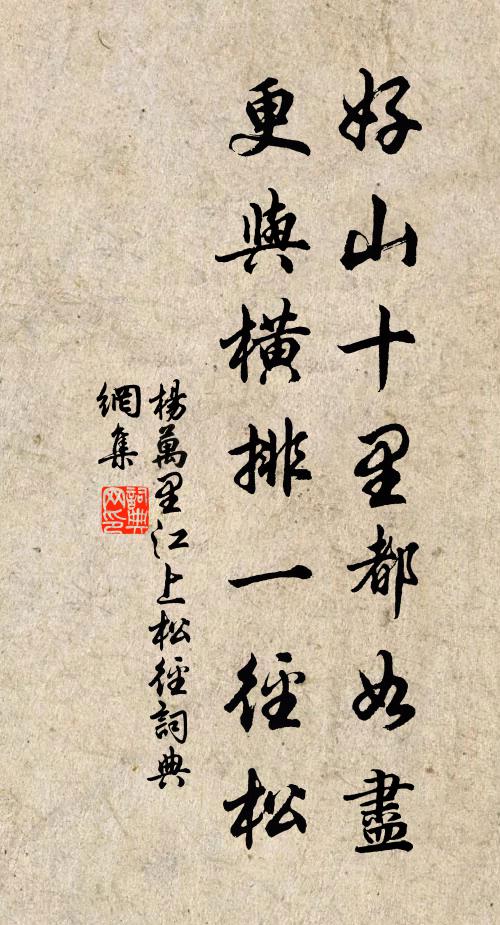 好山十里都如盡
更與橫排一徑松
楊萬里江上松徑詞典
網集
詞典
网印